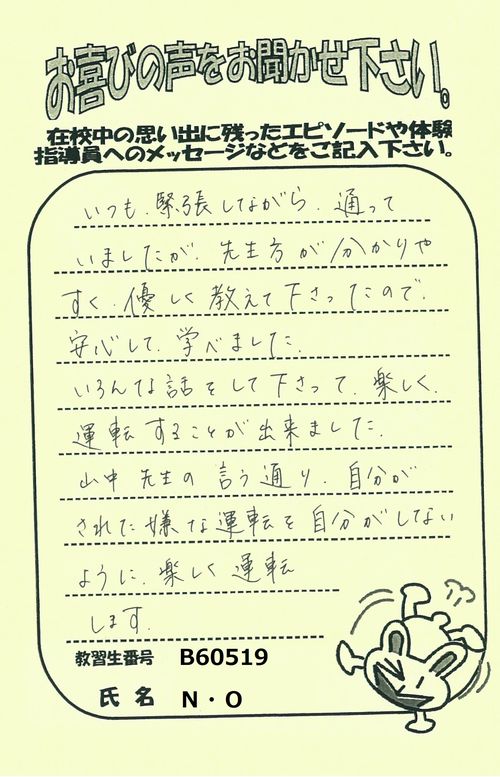 お喜びの声をお聞かせ下さい。
在校中の思い出に残ったエピソードや体験
指導員へのメッセージなどをご記入下さい。
いつも、緊張しながら、通って
いましたが、先生方が分かりや
すく、優しく教えて下さったので、
安心して、学べました。
いろんな話をして下さって、楽しく、
運転することが出来ました。
山中先生の言う通り、自分が
された嫌な運転を自分がしない
ように、楽しく運転
します。
教習生番号 B60519
氏名 N・O